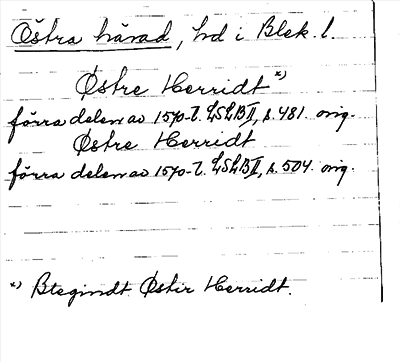 Östra härad, hd i Blek. l.
Østre Herridt *)
förra delen av 1570-t. LSLB II, s. 481. orig.
Østre Herridt
förra delen av 1570-t. LSLB II, s. 504. orig.
*) Btegindt Østir Herridt.